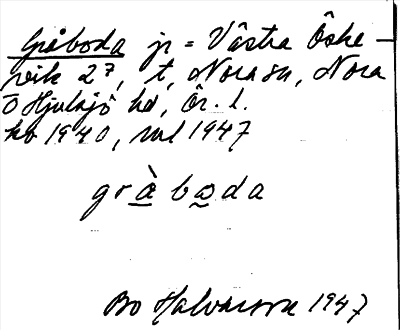 Gråboda jr = Västra Öske-
vik 2⁷, t, Nora sn, Nora
o Hjulsjö hd, Ör. l.
kb 1940, ml 1947
gràboda
Bo Halvarson 1947